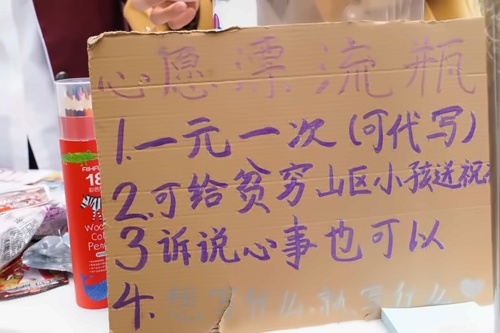 心愿漂流瓶
1.一元一次(可代写)
2.可给贫穷山区小孩送祝
3诉说心事也可以
4.想写什么就写什么
18
Woo
Co
Penc